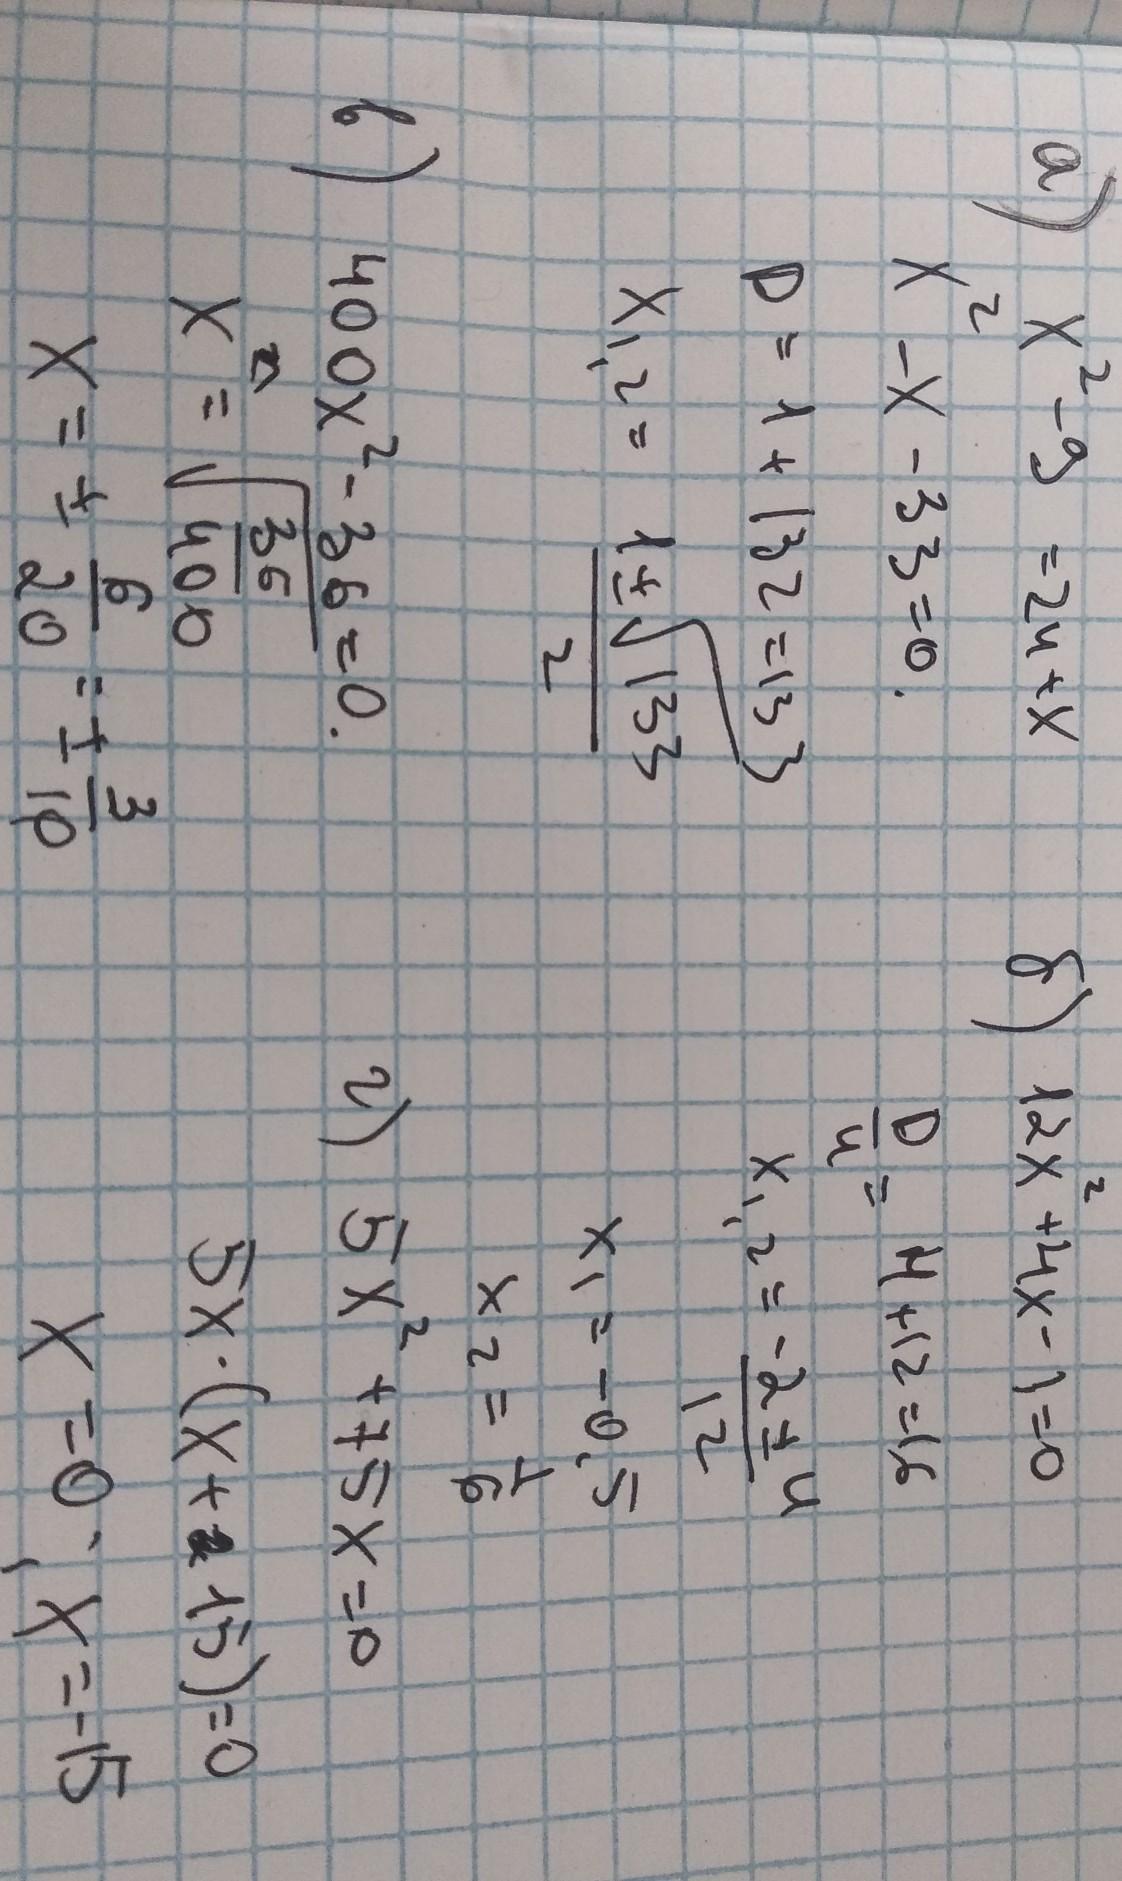 а) x² - 9 = 24 + x
x² - x - 33 = 0.
D = 1 + 132 = 133
x₁,₂ = (1 ± √133) / 2
б) 12x² + 4x - 1 = 0
D/4 = 4 + 12 = 16
x₁,₂ = (-2 ± 4) / 12
x₁ = -0,5
x₂ = 1/6
в) 400x² - 36 = 0.
x = √(36/400)
x = ± 6/20 = ± 3/10
г) 5x² + 75x = 0
5x · (x + 15) = 0
x = 0; x = -15